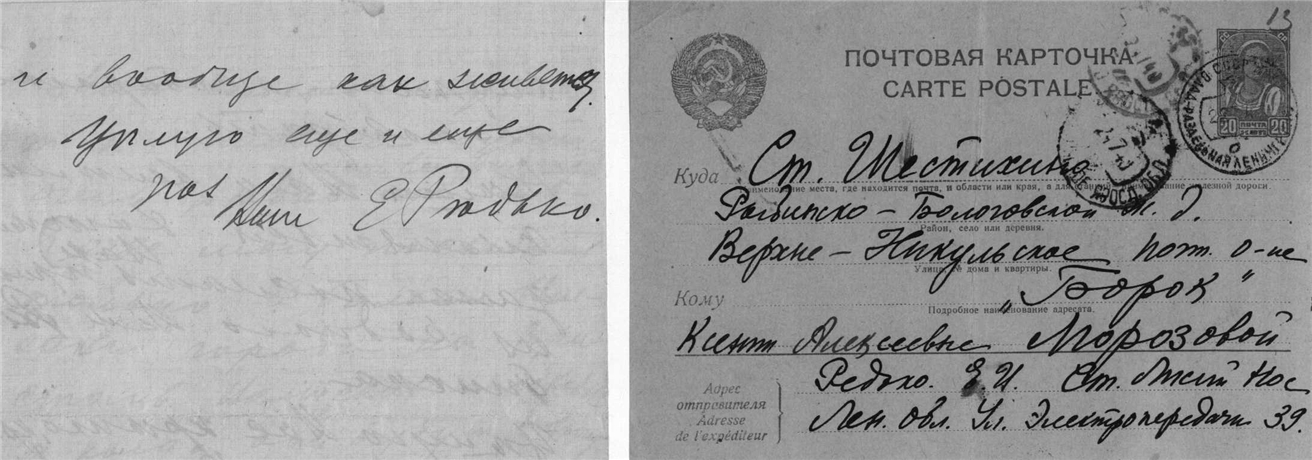 и вообще как живется.
Цылую еще и еще
раз Ваш Е Редько.
13
ПОЧТОВАЯ КАРТОЧКА
CARTE POSTALE
20 ПОЧТА 20
Куда Ст. Шестихино
наименование места, где находится почта, и области или края, а для станций наименование железной дороги
Рыбинско - Бологовской ж. д.
Район, село или деревня.
Верхне - Никульское поч. о-ие
Улица, № дома и квартиры.
Кому „Борок"
Подробное наименование адресата.
Ксении Алексеевне Морозовой
Адрес отправителя
Adresse de l'expéditeur
Редько. Е. И. Ст. Лисий Нос
Лен. Обл. Ул. Электропередачи 39.